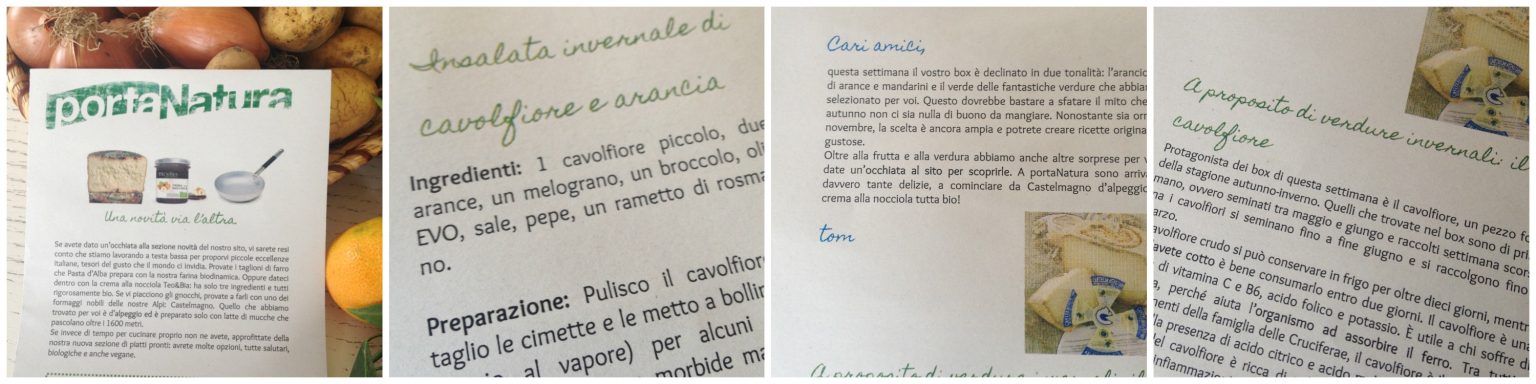 portaNatura
Una novità via l'altra
Se avete dato un'occhiata alla sezione novità del nostro sito, vi sarete resi
conto che stiamo lavorando a testa bassa per proporvi piccole eccellenze
italiane, tesori del gusto che il mondo ci invidia. Provate i taglioni di farro
che Pasta d'Alba prepara con la nostra farina biodinamica. Oppure dateci
dentro con la crema alla nocciola Teo&Bia: ha solo tre ingredienti e tutti
rigorosamente bio. Se vi piacciono gli gnocchi, provate a farli con uno dei
formaggi nobili delle nostre Alpi: Castelmagno. Quello che abbiamo
trovato per voi è d'alpeggio ed è preparato solo con latte di mucche che
pascolano oltre i 1600 metri.
Se invece di tempo per cucinare proprio non ne avete, approfittate della
nostra nuova sezione di piatti pronti: avrete molte opzioni, tutte salutari,
biologiche e anche vegane.
Insalata invernale di
cavolfiore e arancia
Ingredienti: 1 cavolfiore piccolo, due
arance, un melograno, un broccolo, oli
EVO, sale, pepe, un rametto di rosma
no.
Preparazione: Pulisco il cavolfiore
taglio le cimette e le metto a bollir
al vapore) per alcuni
morbide ma
Cari amici,
questa settimana il vostro box è declinato in due tonalità: l'arancio
di arance e mandarini e il verde delle fantastiche verdure che abbia
selezionato per voi. Questo dovrebbe bastare a sfatare il mito che
autunno non ci sia nulla di buono da mangiare. Nonostante sia orm
novembre, la scelta è ancora ampia e potrete creare ricette origina
gustose.
Oltre alla frutta e alla verdura abbiamo anche altre sorprese per v
date un'occhiata al sito per scoprirle. A portaNatura sono arriva
davvero tante delizie, a cominciare da Castelmagno d'alpeggio
crema alla nocciola tutta bio!
tom
A proposito di verdure invernali: il
A proposito di verdure invernali: il
cavolfiore
Protagonista dei box di questa settimana è il cavolfiore, un pezzo fo
della stagione autunno-inverno. Quelli che trovate nel box sono di pri
mano, ovvero seminati tra maggio e giugno e raccolti settimana scor
na i cavolfiori si seminano fino a fine giugno e si raccolgono fino
arzo.
avolfiore crudo si può conservare in frigo per oltre dieci giorni, mentr
avete cotto è bene consumarlo entro due giorni. Il cavolfiore è una
di vitamina C e B6, acido folico e potassio. È utile a chi soffre d
a, perché aiuta l'organismo ad assorbire il ferro. Tra tutt
menti della famiglia delle Cruciferae, il cavolfiore è il
lla presenza di acido citrico e acido m
del cavolfiore è ricca di
infiammazio